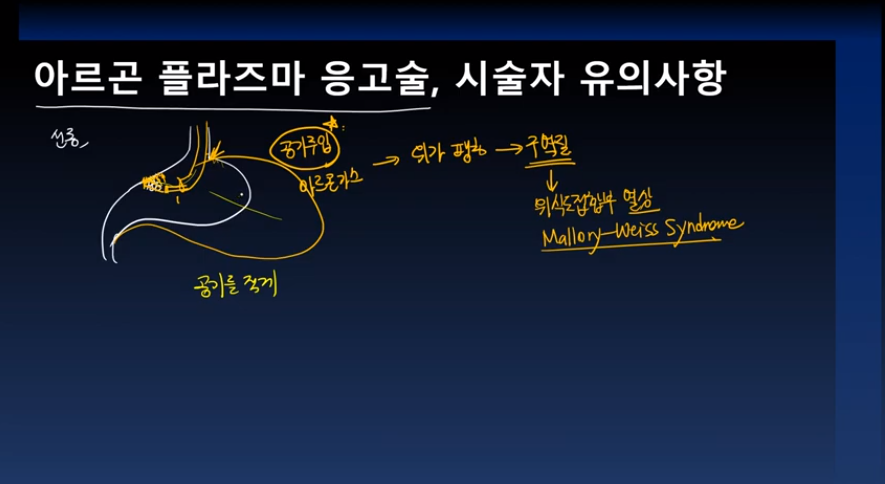 아르곤 플라즈마 응고술, 시술자 유의사항
선종
공기주입
아르곤가스
→ 위가 팽창 → 구역질
↓
위식도접합부 열상
Mallory-Weiss Syndrome
공기를 적게